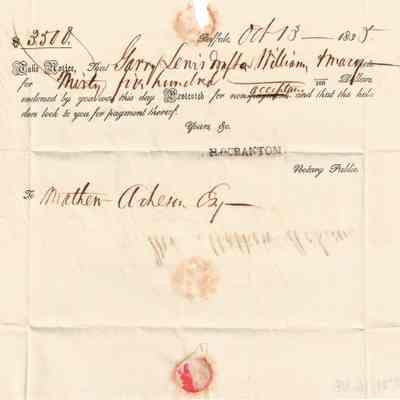 $ 3500. Buffalo, Oct 13 — 1835
Take Notice, That Garry Lewis draft on William Emary
for Thirty five hundred Dollars
endorsed by you was this day Protested for non payment acceptance and that the hol-
ders look to you for payment thereof.
Yours &c.
H. CRANTON.
Notary Public.
To Mathew Acheson Esq